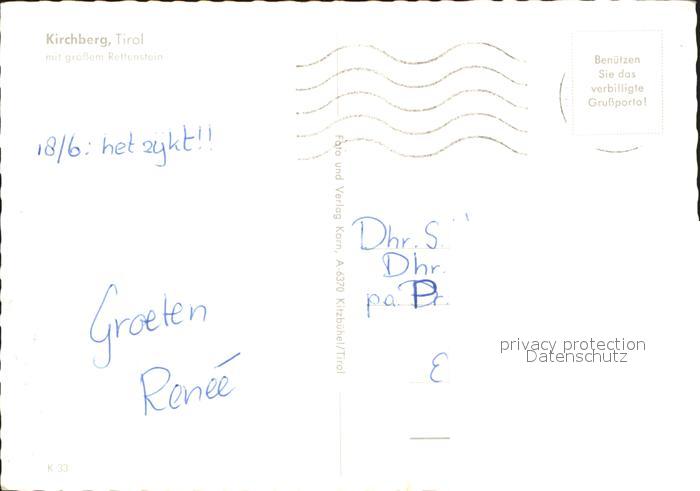 Kirchberg, Tirol
mit großem Rettenstein
Benützen
Sie das
verbilligte
Grußporto!
18/6: het zijkt!!
Groeten
Renéé
Foto und Verlag Korn, A-6370 Kitzbühel/Tirol
Dhr. S.
Dhr.
pa. Dr.
E
privacy protection
Datenschutz
K 33